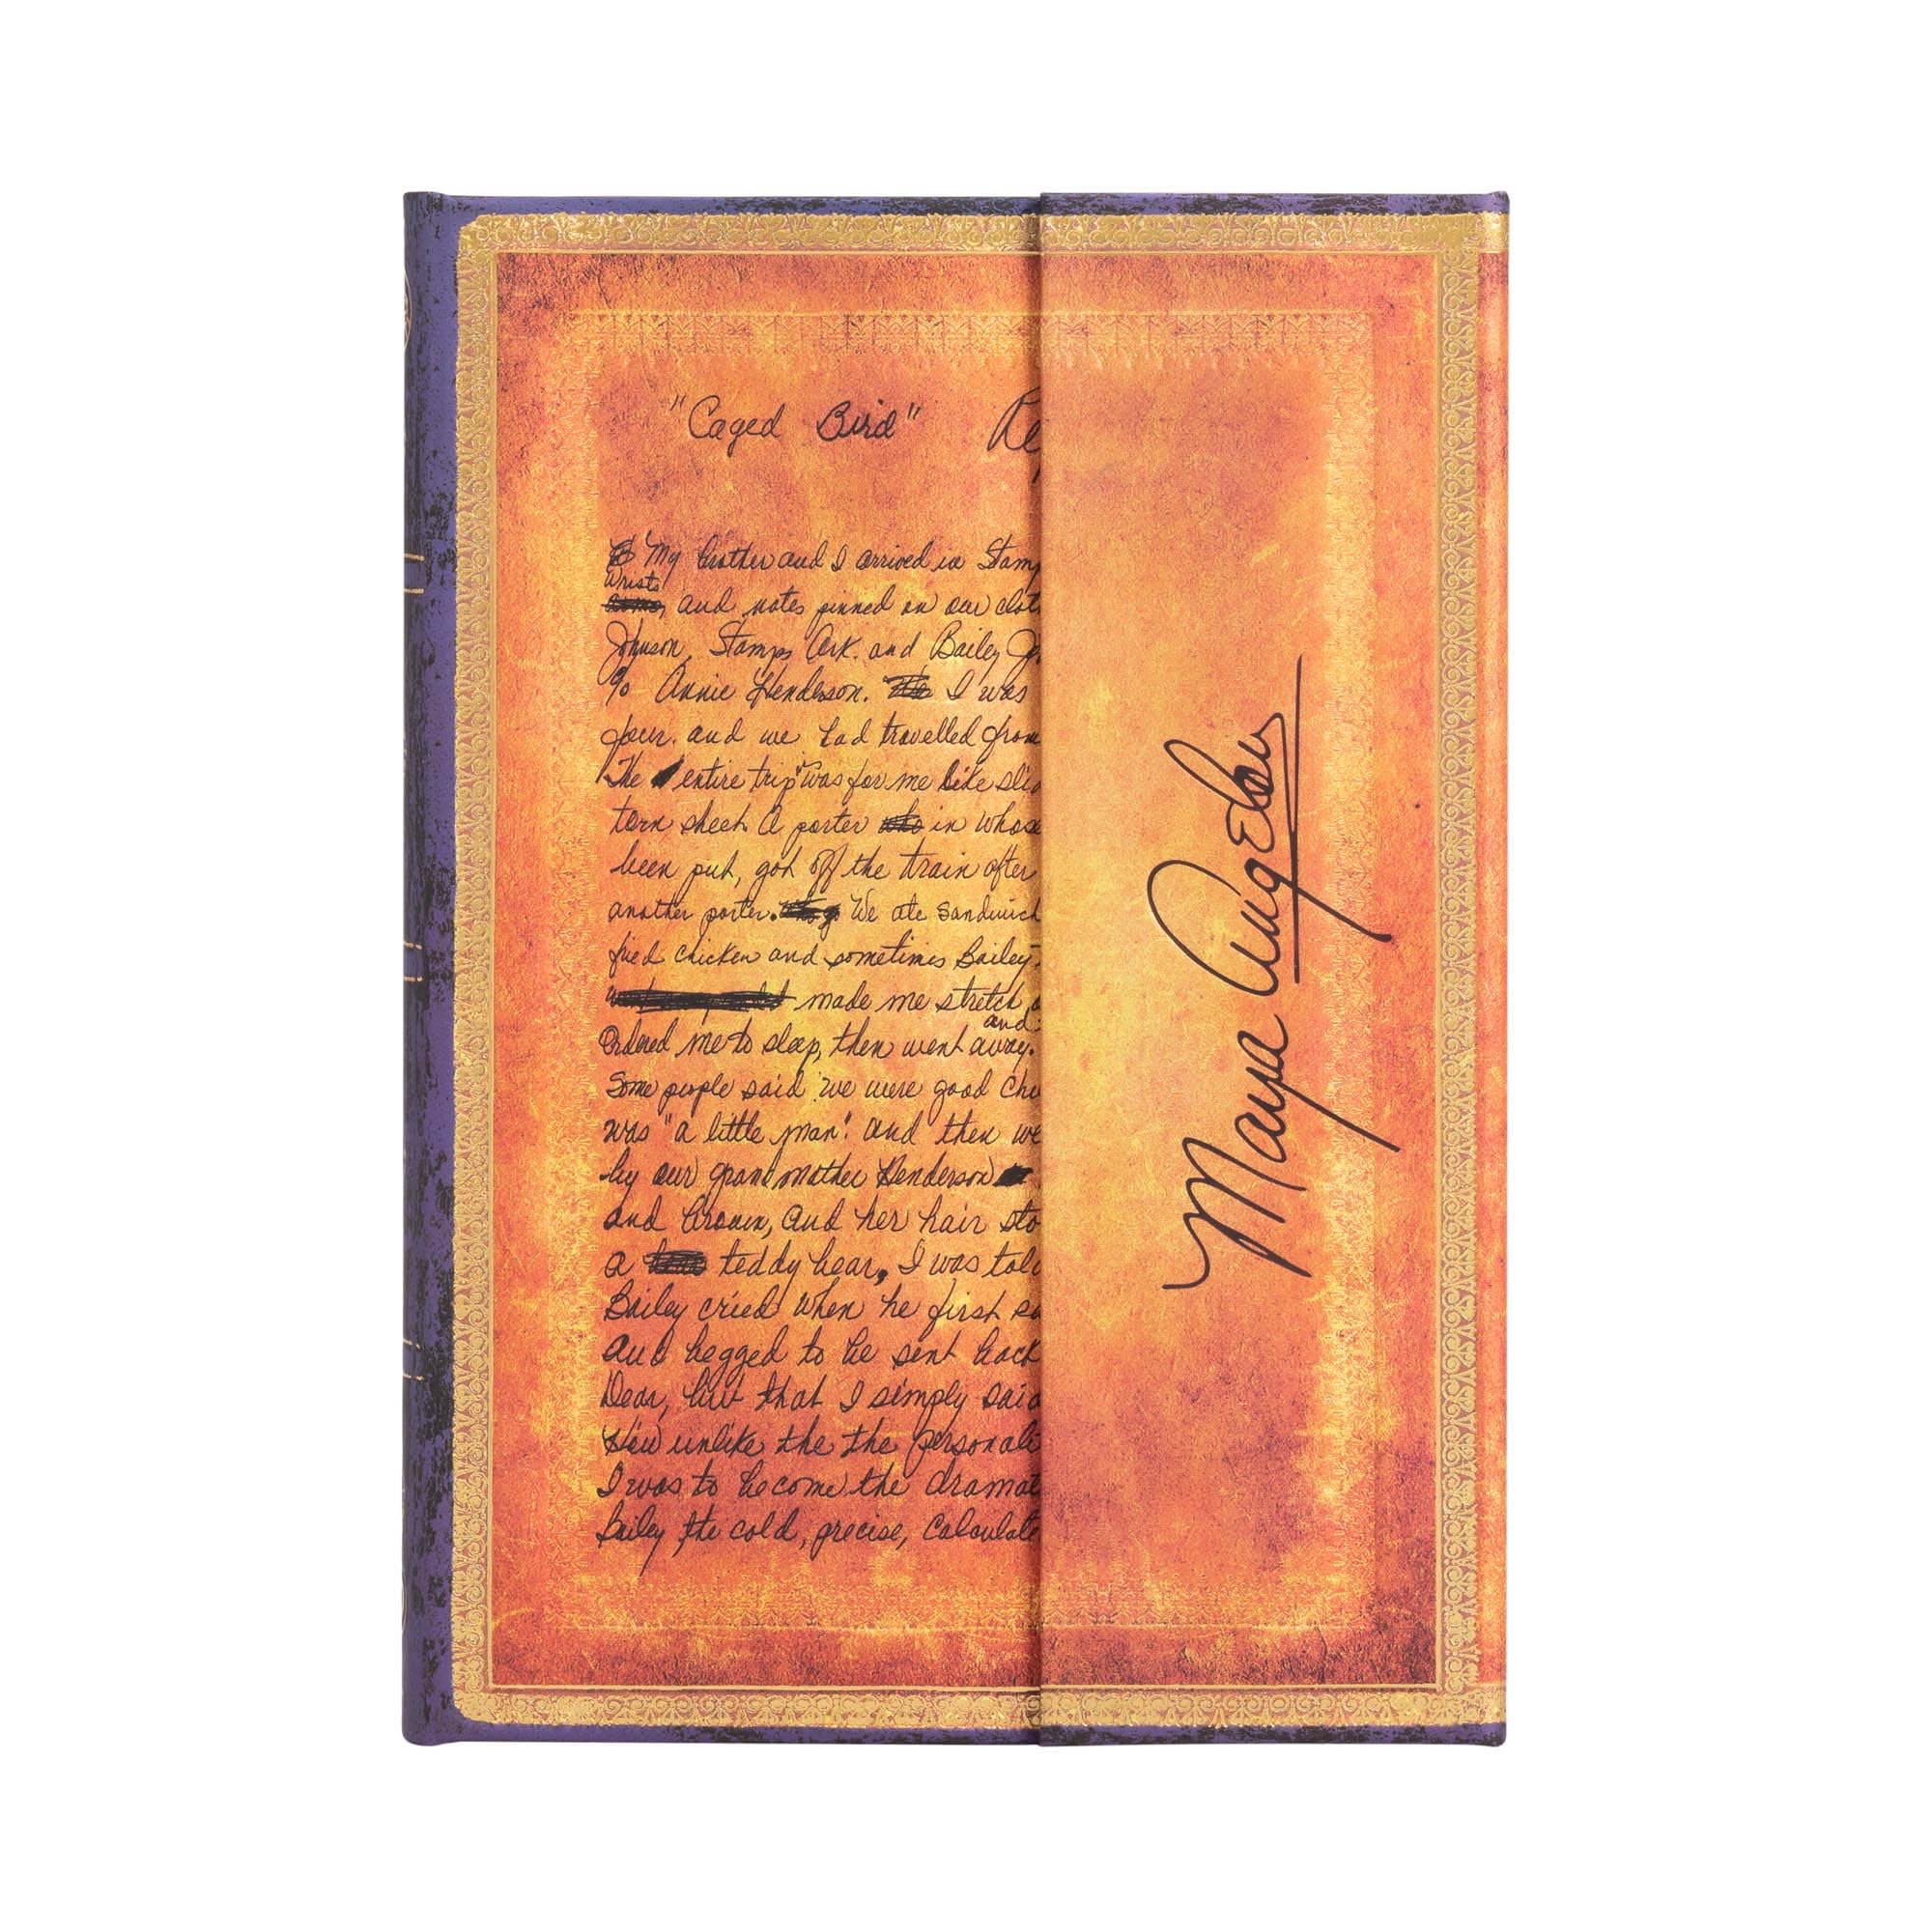 "Caged Bird" Re
My brother and I arrived in Stam
wrists
and notes pinned on our clot
Johnson, Stamps Ark. and Bailey Jo
c/o Annie Henderson. I was
four. and we had travelled from
The entire trip was for me like sli
torn sheet. A porter who in whose
been put, got off the train after
another porter. We ate sandwich
fried chicken and sometimes Bailey
made me stretch
and
Ordered me to sleep, then went away.
Some people said we were good chi
was "a little man". and then we
by our grandmother Henderson
and brown, and her hair sto
a teddy bear, I was tol
Bailey cried when he first s
And begged to be sent back
Dear, but that I simply said
How unlike the the personali
I was to become the dramat
Bailey the cold, precise, Calculate
Maya Angelou